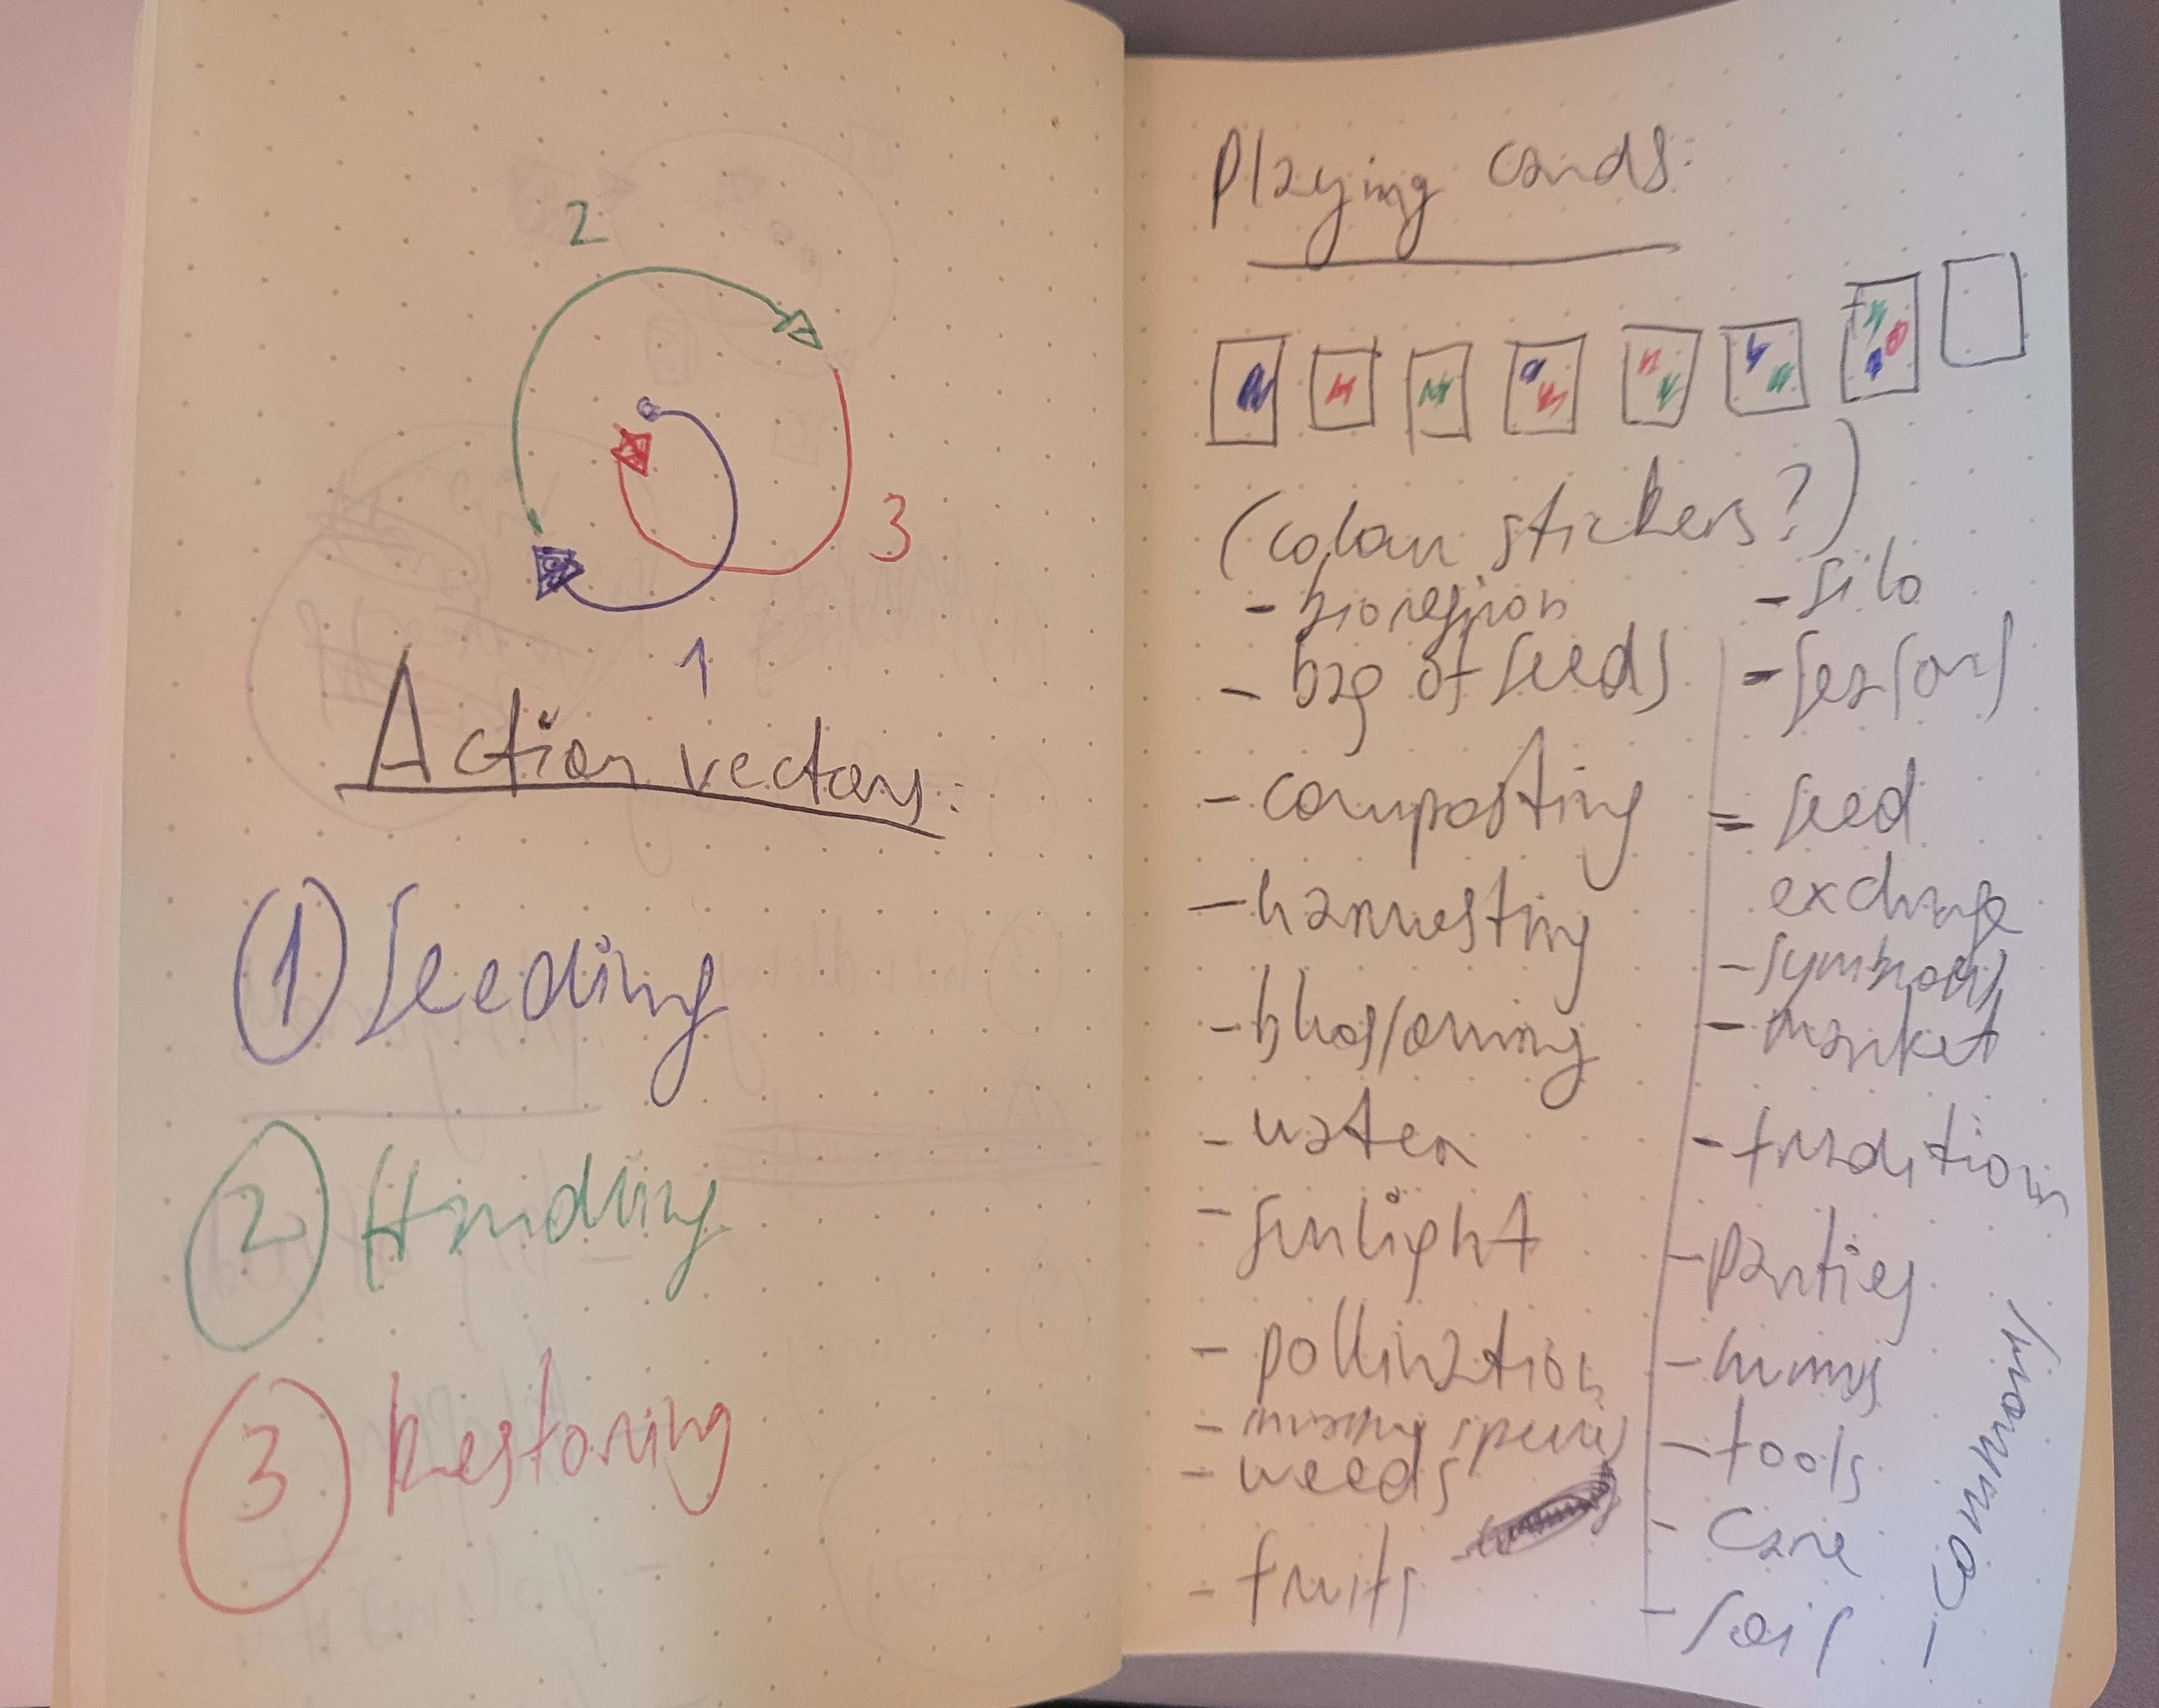 2
3
1
Action vectors:
1 Seeding
2 Handling
3 Restoring
Playing cards:
(colour stickers?)
- bioregion
- bag of seeds
- composting
- harvesting
- blossoming
- water
- sunlight
- pollination
- missing species
- weeds
- fruits
- silo
- seasons
- seed
exchange
- symbiosis
- market
- traditions
- parties
- humus
- tools
- care
- soil
- commons